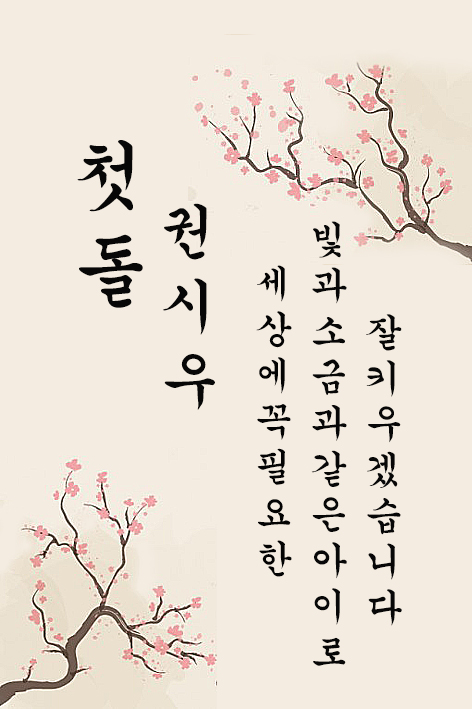 첫돌
권시우
세상에꼭필요한
빛과소금과같은아이로
잘키우겠습니다